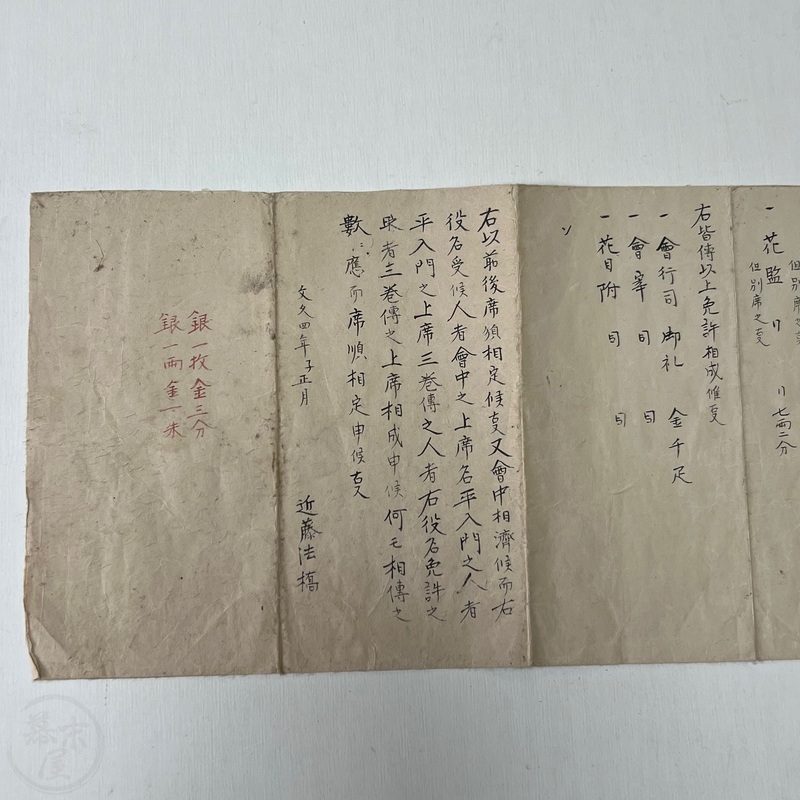 但別席之事
一 花監 〃 〃 七両二分
但別席之事
右皆傳以上免許相成候事
一 會行司 御礼 金千疋
一 會宰 同 同
一 花目附 同 同
右以前後席須相定候事又會中相濟候而右
役名受候人者會中之上席名平入門之人者
平入門之上席三巻傳之人者右役名免許之
者三巻傳之上席相成申候何モ相傳之
數ニ應而席順相定申候事
文久四年子正月
近藤法橋
銀一枚金三分
銀一両金一朱
幕末屋